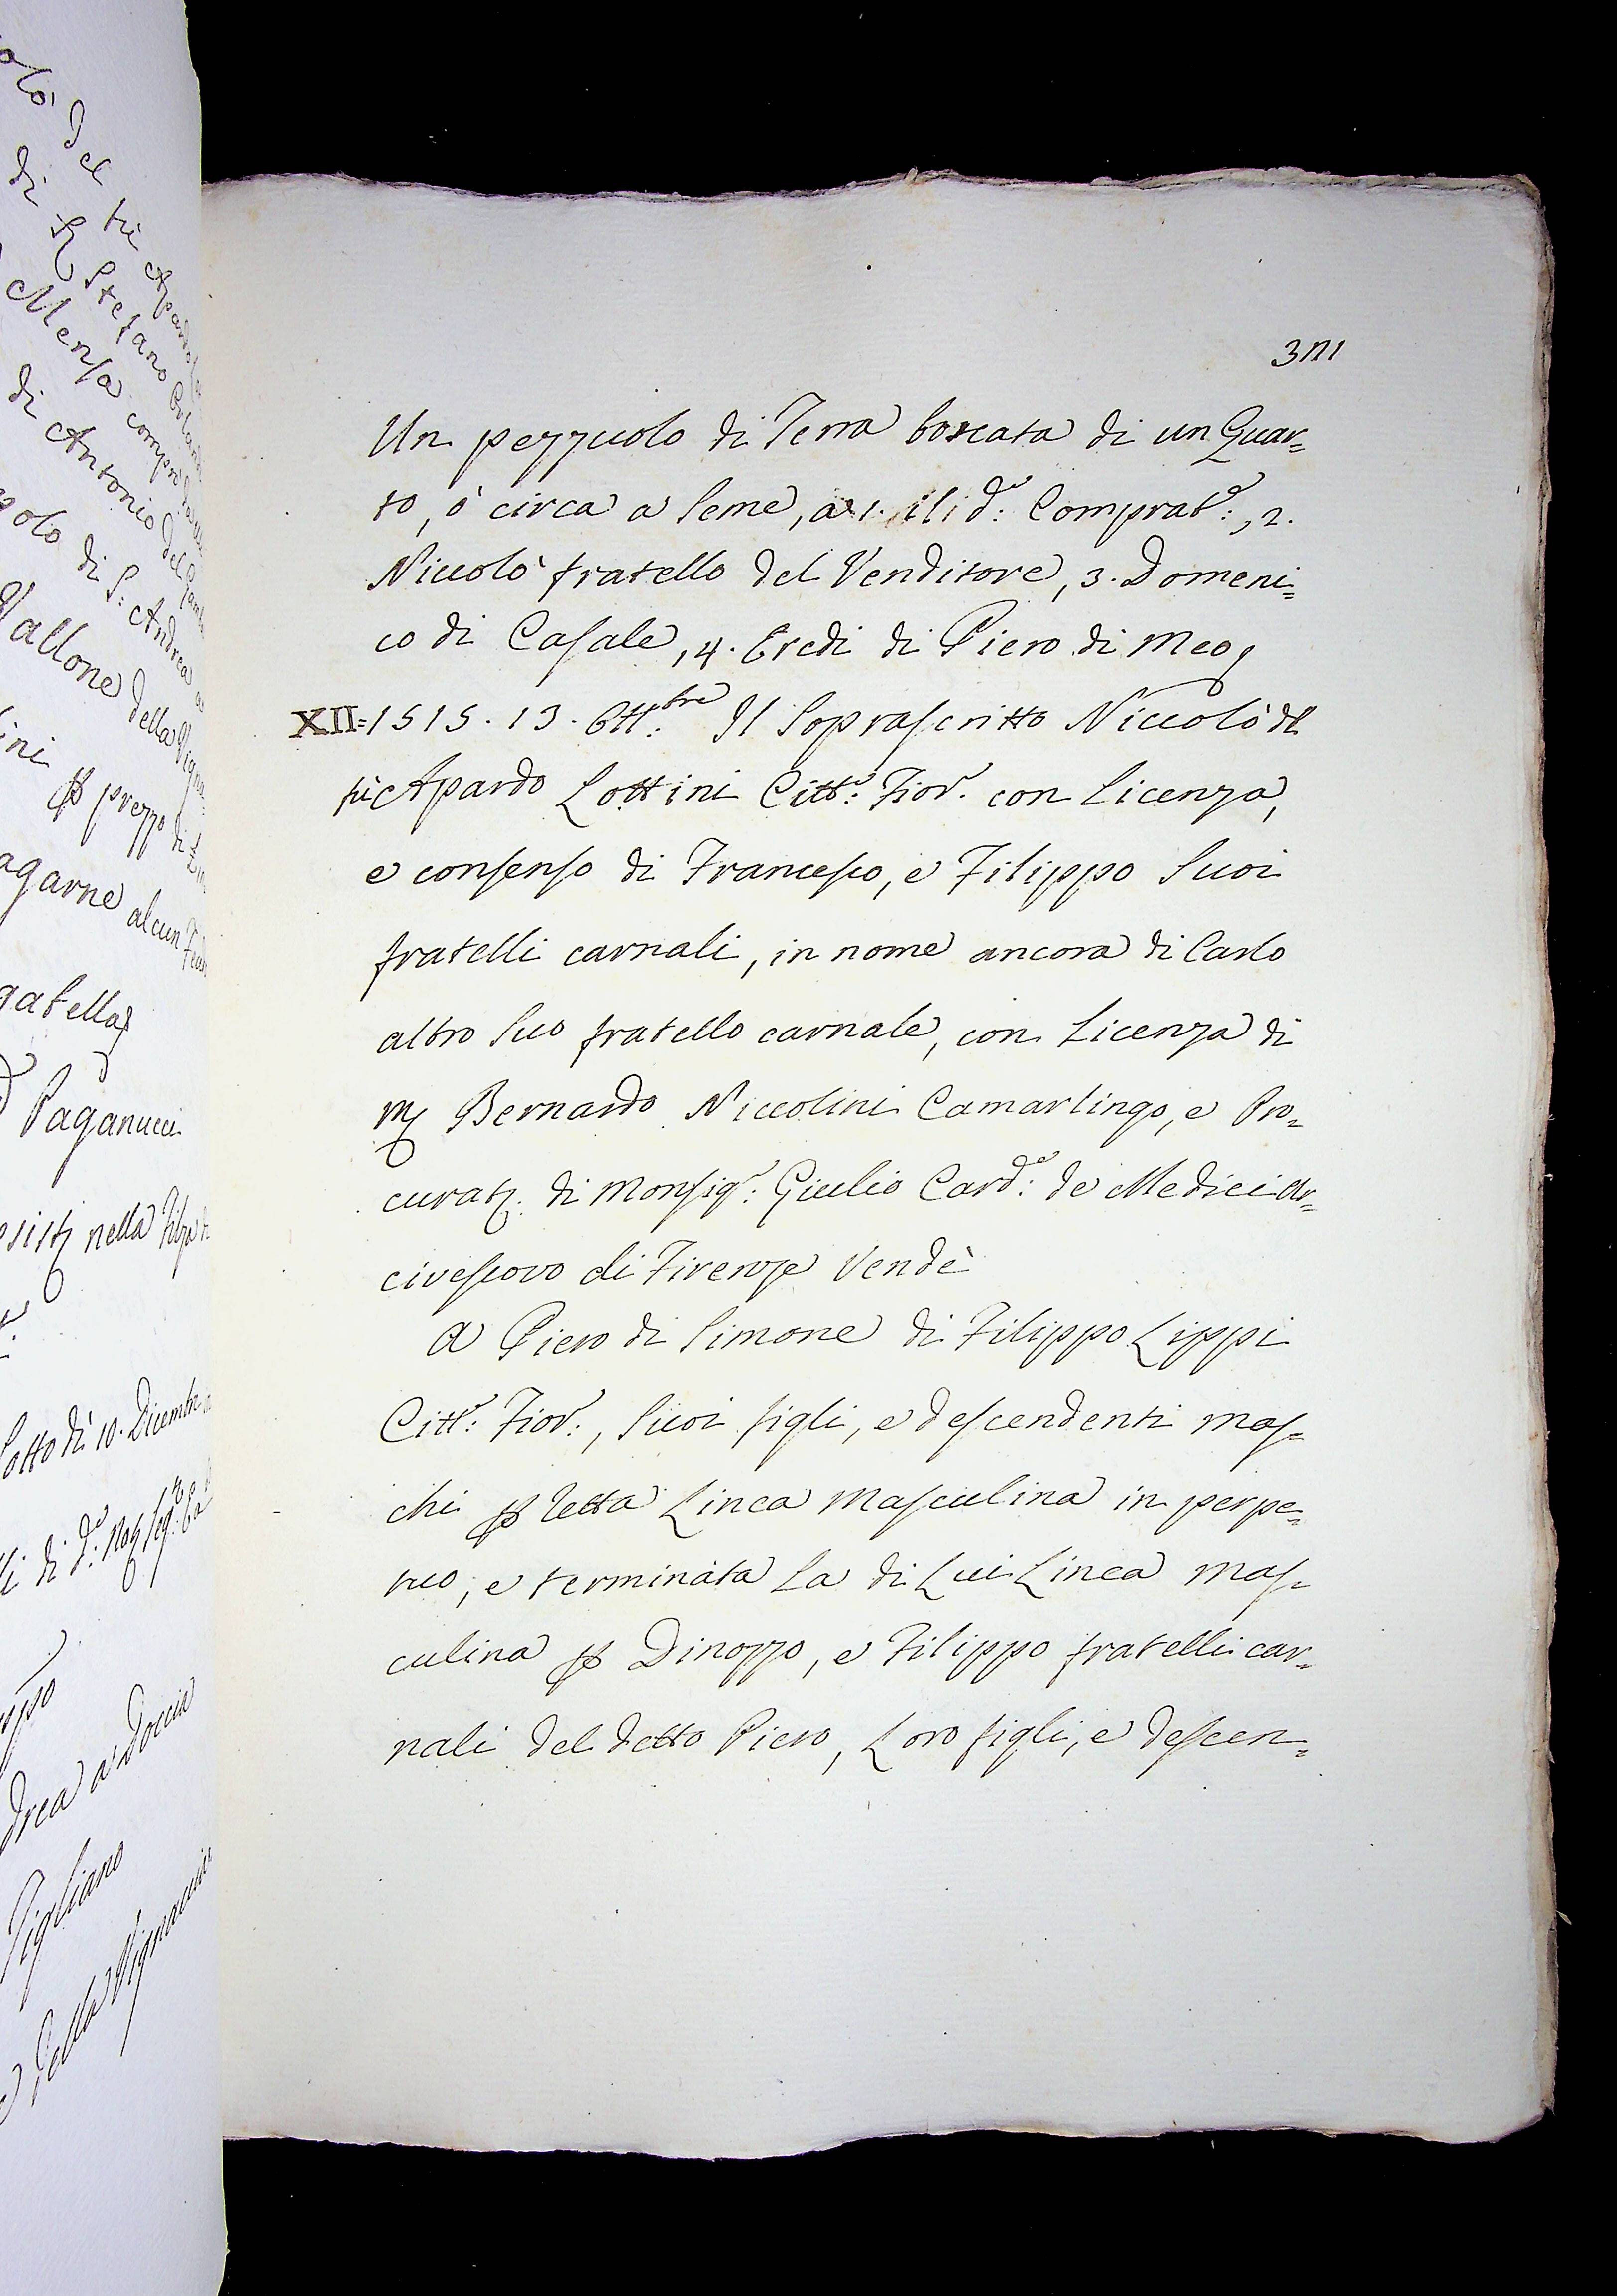 olo' del fù Apardo
di S. Stefano
Mensa
di Antonio del
polo di S: Andrea a
Vallone della Vigna
ini
prezzo di
agarne alcun
gabella
Paganucci
nella Filza
Sotto dì 10. Dicembre
li di d.º
drea a Doccia
Figliano
della Vignaccia
311
Un pezzuolo di Terra boscata di un Quar=
to, ò circa a Seme, a 1. il d.º: Comprat.e:, 2.
Niccolò fratello del Venditore, 3. Domeni=
co di Casale, 4. Eredi di Piero di Meo
XII=1515. 13. Ott:bre Il Soprascritto Niccolò del
fù Apardo Lottini Citt.o: Fior.o con Licenza,
e consenso di Francesco, e Filippo Suoi
fratelli carnali, in nome ancora di Carlo
altro Suo fratello carnale, con Licenza di
M Bernardo Niccolini Camarlingo, e Pro=
curat. di Monsig.r: Giulio Card.e: de Medici Ar=
civescovo di Firenze Vendè
A Piero di Simone di Filippo Lippi
Citt.o: Fior.o:, Suoi figli, e descendenti mas=
chi p retta Linea Masculina in perpe=
tuo, e terminata La di Lui Linea mas=
culina p Dinozzo, e Filippo fratelli car=
nali del detto Piero, Loro figli, e descen=